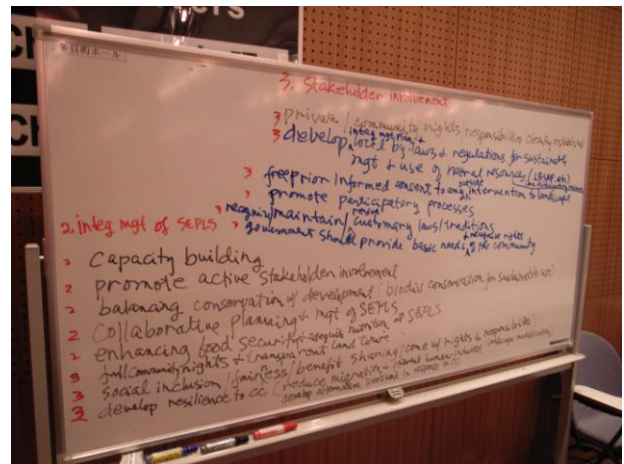 多目的ホール
3. Stakeholder Involvement
3 private / community rights / responsibilities clearly established
3 develop local by-laws & regulations for sustainable
integ mgt plans &
mgt & use of natural resources (LBSAP, etc)
3 free prior informed consent to any intervention to landscape
outside
3 promote participatory processes
3 recognize/maintain/customary laws/traditions
revive
3 government should provide basic needs of the community
& recognize rights
2. integ mgt of SEPLS
2 Capacity building
2 promote active stakeholder involvement
2 balancing conservation w/ development (biodiv conservation in sustainable use)
2 Collaborative planning & mgt of SEPLS
2 enhancing food security & adequate nutrition SEPLS
3 full community rights & transparent land tenure
3 social inclusion / fairness / benefit sharing (come w/ rights & responsibilities)
3 develop resilience to CC (reduce migration &
develop alternative livelihood in response to CC